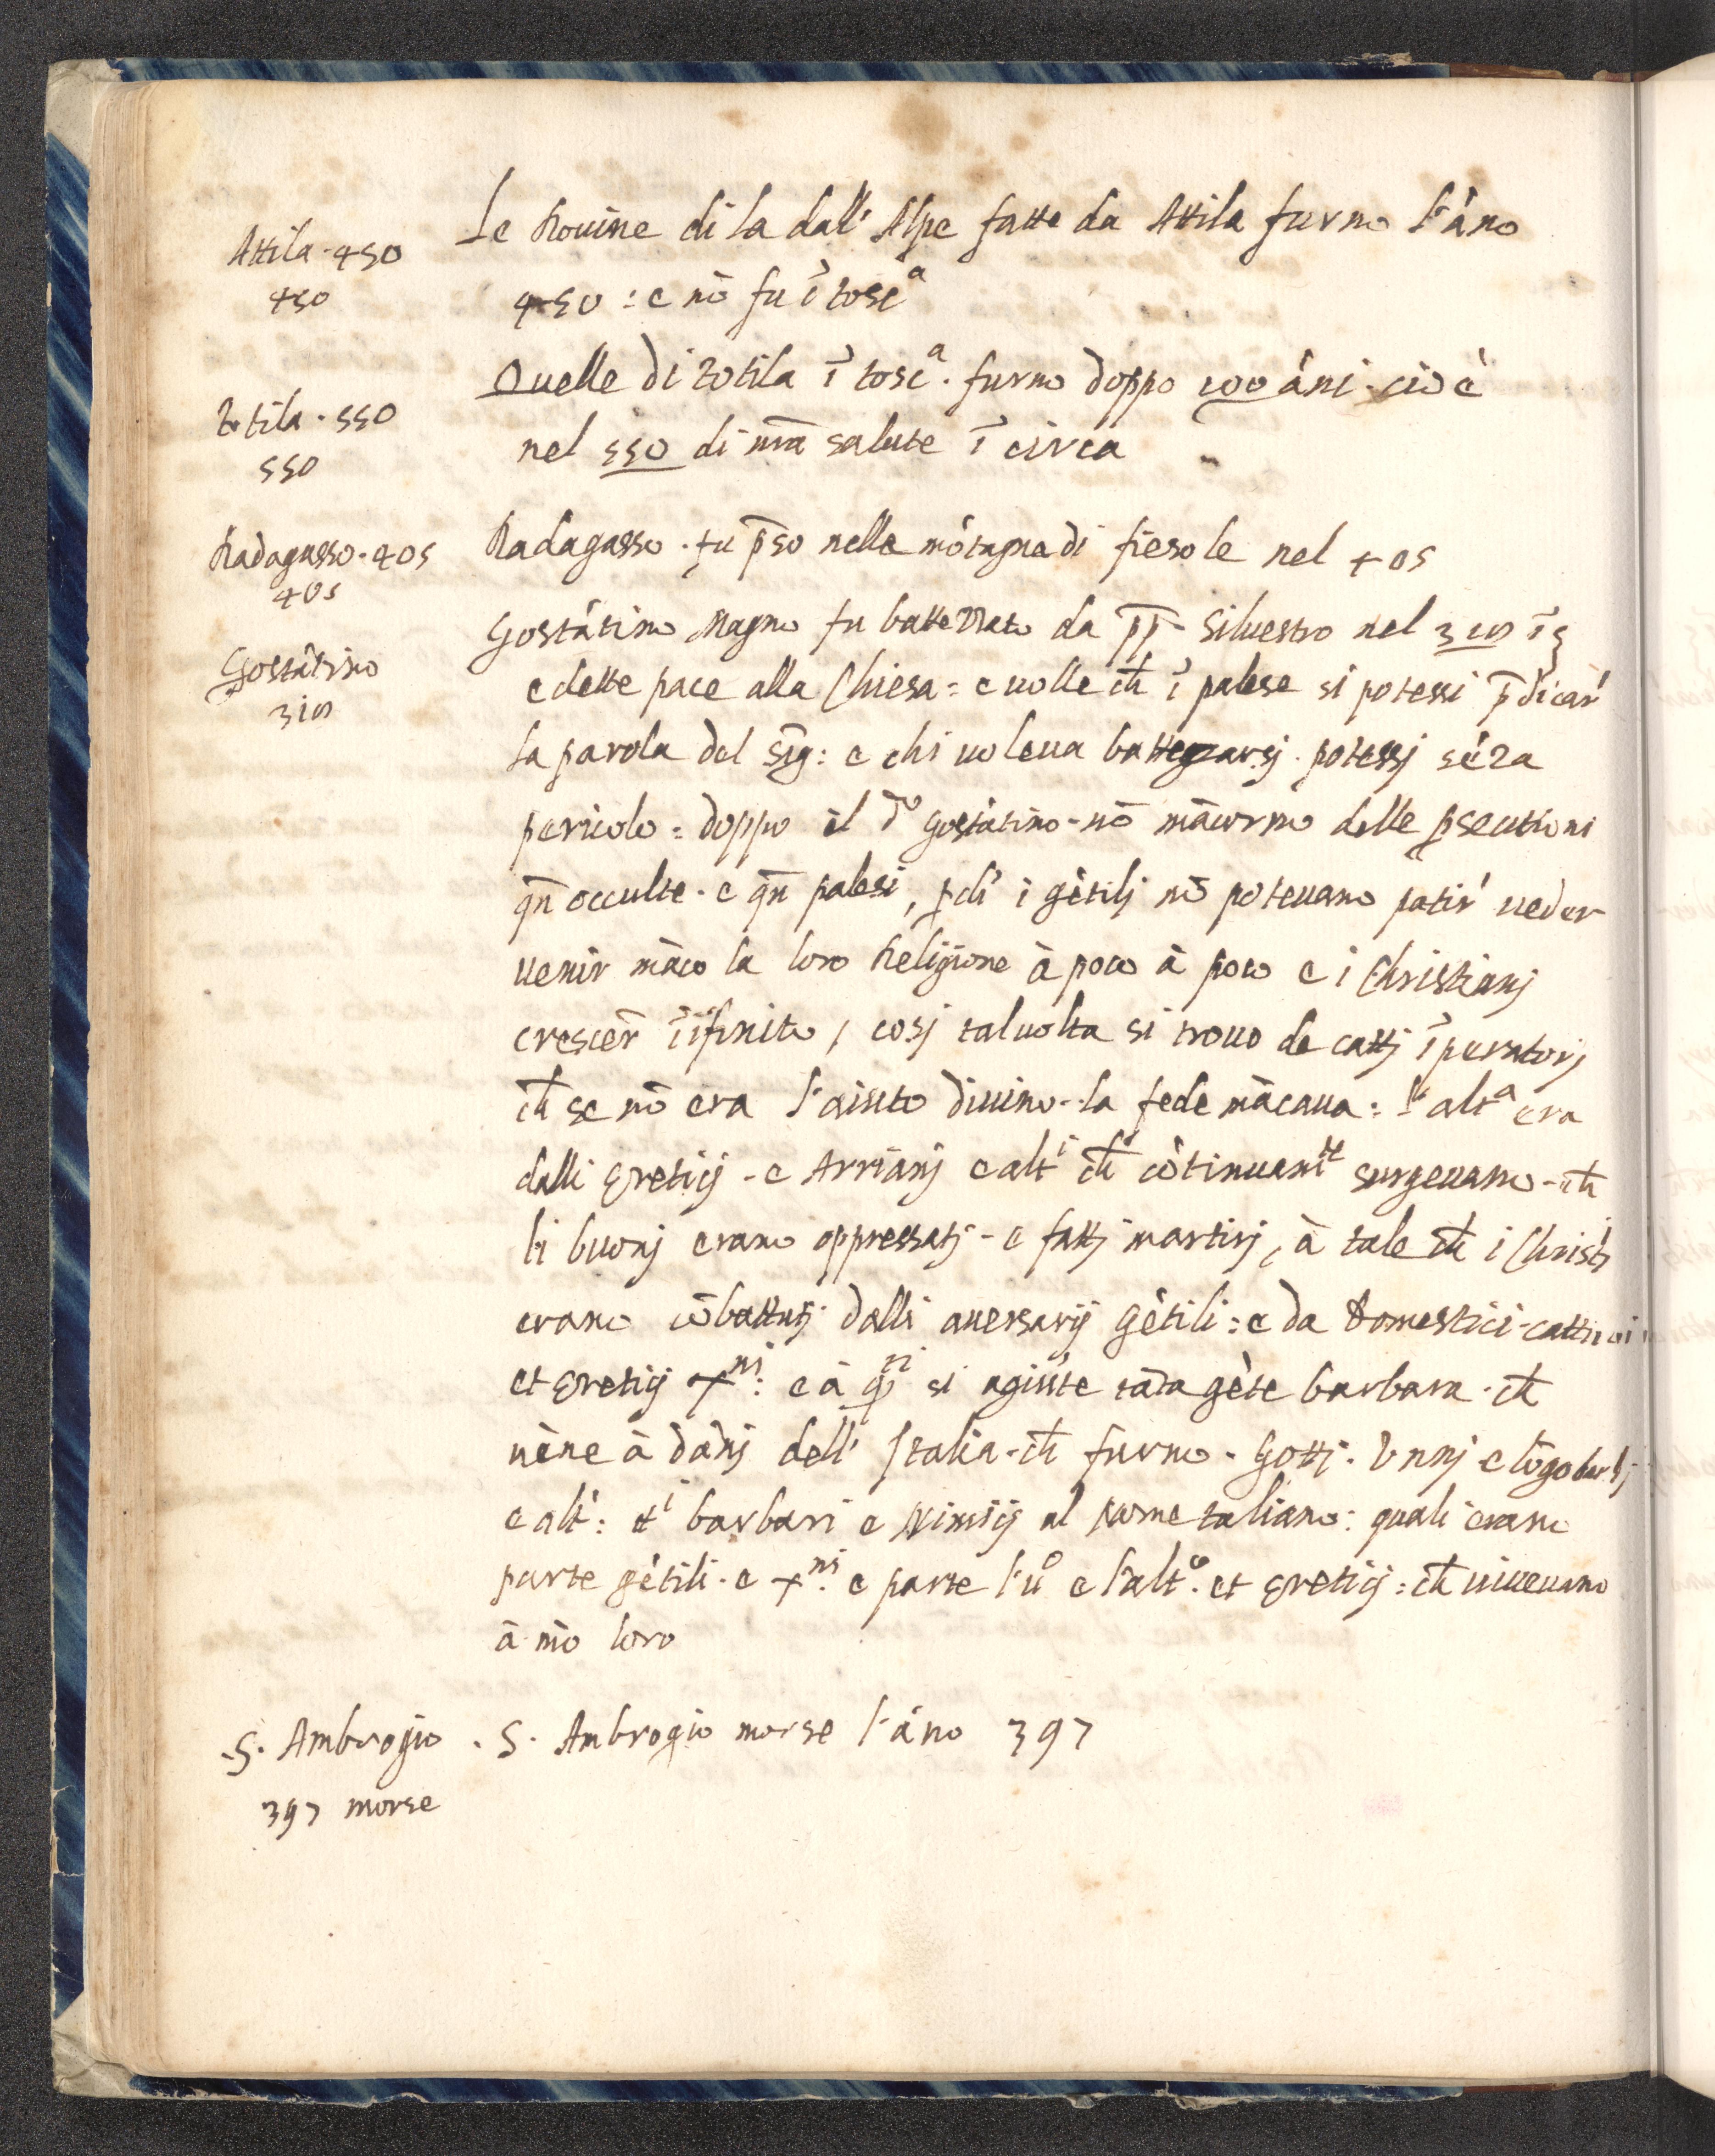 Attila · 450
450
Le Rouine di la dall' Alpe fatte da Attila furno l'āno
450 : e nō fu ī tosc^a
Totila · 550
550
Quelle di totila ī tosc^a · furno doppo 100 āni · cio è
nel 550 di nr̄a salute ī circa
Radagasso · 405
405
Radagasso · fu p̄so nelle mōtagne di fiesole nel 405
Gostātino
Gostātino Magno fu battezzato da pp̄ Siluestro nel
e dette pace alla Chiesa = e uolle ch̄ ī palese si potessi p̄dicar'
la parola del Siḡ: e chi uoleua battezzarsj · potessj sēza
pericolo = doppo il d^o gostātino - nō mācorno delle p̱secutioni
qn̄ occulte - e qn̄ palesi, p̱ch' i gētilj nō poteuano patir' ueder
uenir māco la loro Religione à poco à poco e i Christianj
crescer̄ ī īfinito, cosj taluolta si trouo de cattj īperatorj
ch̄ se nō era l'aiuto diuino - la fede mācaua : l'alt^a era
dalli eretiij - e Arrianj e alt^i ch̄ cōtinuam^te surgeuano - ch̄
li buonj erano oppressatj - e fattj martirj, à tale ch̄ i Christ^i
erano cōbattutj dalli auersarij gētili : e da domestici - cattiui
et eretiij x^ni : e à q^sti si agiūse tāta gēte barbara · ch̄
uēne à dānj dell' Italia - ch̄ furno - Gottj · Unnj e lōgobardj
e alt^i : et barbari e nimiij al nome taliano : quali erano
parte gētili - e x^ni · e parte l'ū^o e l'alt^o · et eretiij : ch̄ uiueuano
à mō loro
S. Ambrogio
397 morse
· S. Ambrogio morse l'āno 397